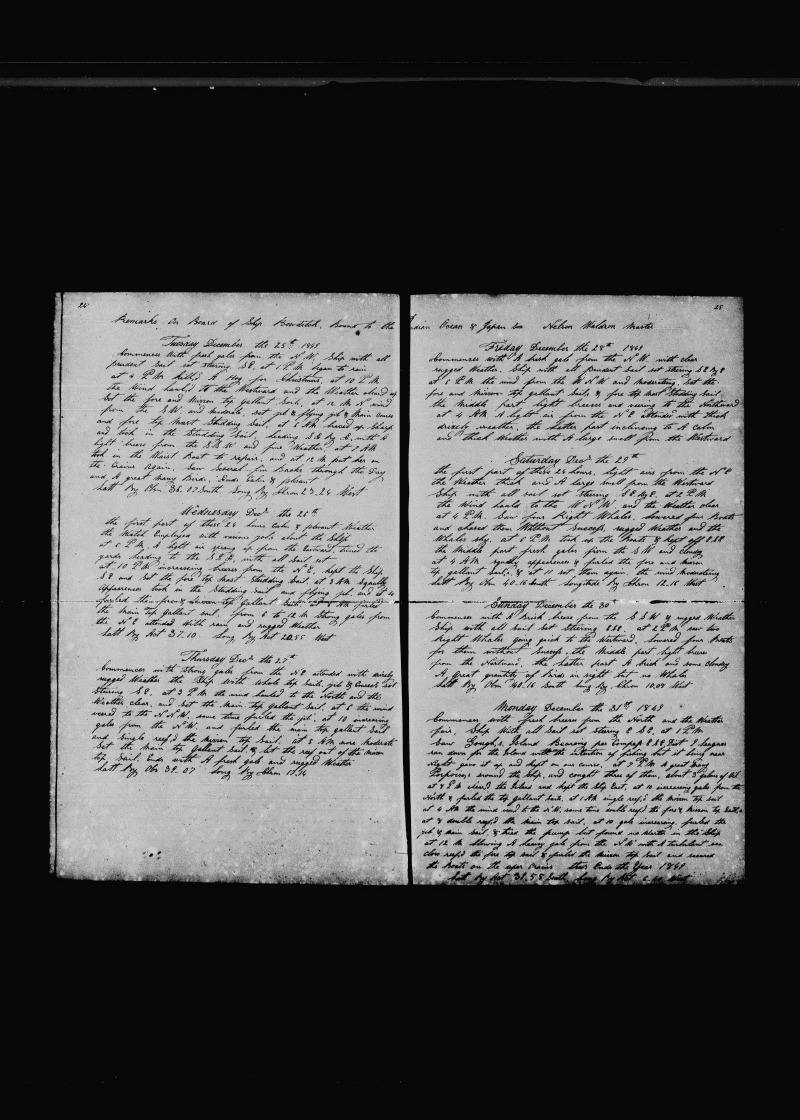 24
Remarks On Board of Ship Bowditch, Bound to the
Tuesday December the 25th 1849
Commences With fresh gales from the N.W, Ship with all
prudent Sail set stering SE, at 1 PM began to rain
at 4 P.M. Kill'd A Hog for Christmas, at 10 P.M.
the Wind hauld to the Westward and the Weather cleard up
Set the fore and Mizzen top gallant Sails, at 12 M N wind
from the S.W. and moderate set jib & flying jib & Main course
and fore top Mast Studding Sail, at 1 AM braced up Sharp
and took in the Studding Sail, heading S E By E, with A
light breeze from the S.S.W and fine Weather, at 7 AM
took in the Waist Boat to repair, and at 12 M put her on
the Crains Again. Saw Several fin Backs through the Day
and A great many Birds. Ends Calm & pleasant
Latt By Obn 36.07 South Long By Chron 23.24 West
Wednesday Decr the 26th
the first part of these 24 hours Calm & pleasant Weather
the Watch Employed with various jobs about the Ship
at 6 P.M, A light air sprung up from the Eastward, braced the
yards heading to the S.S.E, with all Sail set
at 10 P.M increasing breeze from the N.E, kept the Ship
S E and Set the fore top Mast Studding Sail, at 3 AM Squally
Appearences took in the Studding Sail and flying jib, and at 4
furled the fore & Mizzen top Gallant Sails
the Main top Gallant Sail. from 8 to 12 M Strong gales from
the N E attended With rain and rugged Weather
Latt By Act 37.10 Long By Act 20.55 West
Thursday Decr the 27th
Commences with Strong gales from the N.E attended with drizely
rugged Weather the Ship With Whole top Sails, jib & Courses Set
Stering S E, at 3 P.M the wind hauled to the North and the
Weather clear, and Set the Main top Gallant Sail, at 8 the wind
veered to the N.N.W, same time furled the jib, at 10 increasing
gale from the N.W. and furled the main top gallant Sail
and Single reef'd the Mizzen top Sail, at 5 AM more moderate
Set the Main top Gallant Sail & let the reef out of the Mizen
top Sail, Ends With A fresh gale and rugged Weather
Latt By Obn 39.07 Long By Chron
25
Indian Ocean & Japan Sea Nelson Waldron Master
Friday December the 28th 1849
Commences with A fresh gale from the N.W. with clear
rugged Weather, Ship with all prudent Sail set stering S E By E
at 2 P.M the wind from the W N W and moderating, Set the
fore and Mizzen top Gallant Sails, & fore top Mast Studding Sail
the Middle part light breezes and veering to the Northward
at 4 AM A light air from the N E attended with thick
drizely weather, the latter part inclineing to A calm
and thick Weather with A large swell from the Westward
Saturday Decr the 29th
the first part of these 24 hours, light airs from the N E
the Weather thick and A large swell from the Westward
Ship with all sail set Stering S E By E, at 2 P.M
the Wind hauled to the W N W, and the Weather clear
at 4 P.M. Saw four Right Whales, lowered four Boats
and chased them Without Success, rugged Weather and the
Whales shy. at 6 P.M took up the Boats & kept off E S E
the Middle part fresh gales from the S W and Cloudy
at 4 AM squally appearences & furled the fore and mizen
top gallant Sails, & at 11 set them again, the wind Moderating
Latt By Obn 40.16 South Longitude By Chron 12.16 West
Sunday December the 30th
Commences with A Brisk breeze from the S.S.W & rugged Weather
Ship with all Sail set Stering E S E, at 2 P.M. saw two
Right Whales going quick to the Westward, lowered four Boats
for them without Success, the Middle part light breeze
from the Northward, the latter part A brisk and some cloudy
A great quantity of birds in sight but no Whales
Latt By Obn 40.16 South Long By Chron 10.08 West
Monday December the 31st 1849
Commences with fresh breeze from the North and the Weather
fair, Ship With all Sail set Stering E S E, at 1 P.M
Saw Gough's Island Bearing per Compass E S E, Dist 9 leagues
ran down for the Island with the intention of fishing but it being near
Night gave it up and kept on our course, at 7 P.M A great Many
Porpoises around the Ship, and caught three of them, about 5 galons of Oil
at 8 P.M Near'd the Island and kept the Ship East, at 10 increasing gales from the
North & furled the top Gallant Sails, at 1 AM single reef'd the Mizzen top sail
at 4 AM the wind veer'd to the N.W, same time double reef'd the fore & Mizzen top Sails
at 8 double reef'd the main top Sail, at 10 gale increasing, furled the
jib & main sail, & tried the pump but found no Water in the Ship
at 12 M blowing A heavy gale from the N.W with A turbulent sea
close reef'd the fore top Sail & furled the Mizzen top Sail and secured
the Boats on the uper Crains thus Ends the Year 1849
Latt By Act South Long By Act West